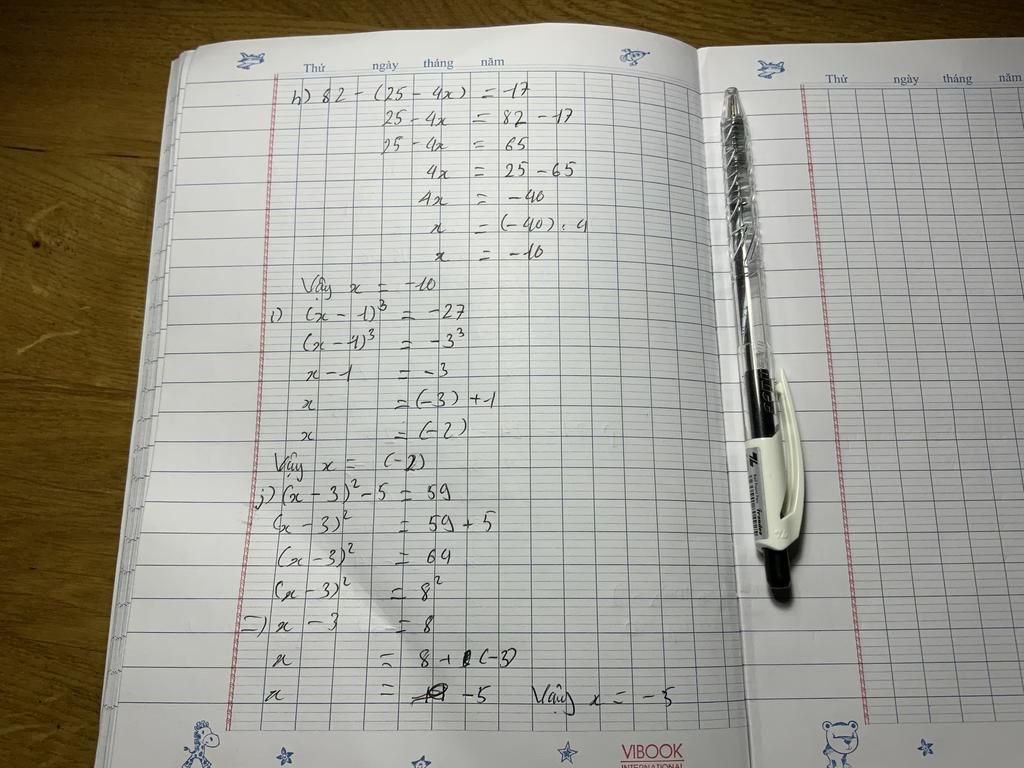 Thứ ngày tháng năm
h) 82 - (25 - 4x) = -17
25 - 4x = 82 - 17
25 - 4x = 65
4x = 25 - 65
4x = -40
x = (-40) : 4
x = -10
Vậy x = -10
i) (x - 1)³ = -27
(x - 1)³ = -3³
x - 1 = -3
x = (-3) + 1
x = (-2)
Vậy x = (-2)
j) (x - 3)² - 5 = 59
(x - 3)² = 59 + 5
(x - 3)² = 64
(x - 3)² = 8²
=) x - 3 = 8
x = 8 + (-3)
x = -5 Vậy x = -5
VIBOOK
INTERNATIONAL
Thứ ngày tháng năm